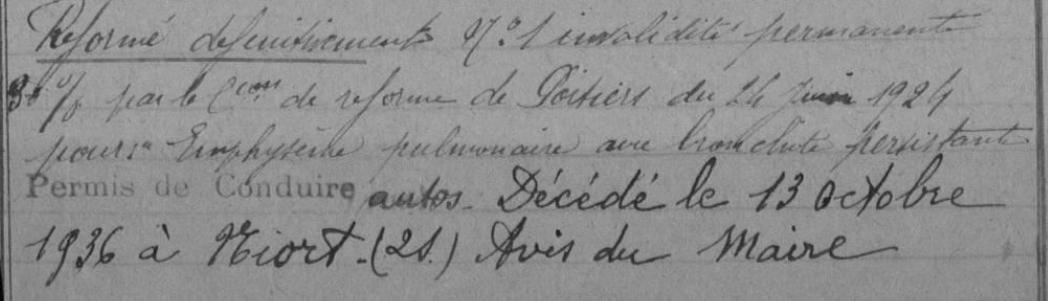 Réformé définitivement N° 1 invalidité permanente
30 % par la Con de réforme de Poitiers du 24 Juin 1924
pour: "Emphysème pulmonaire avec bronchite persistante
Permis de Conduire autos. Décédé le 13 Octobre
1936 à Niort. (2S.) Avis du Maire